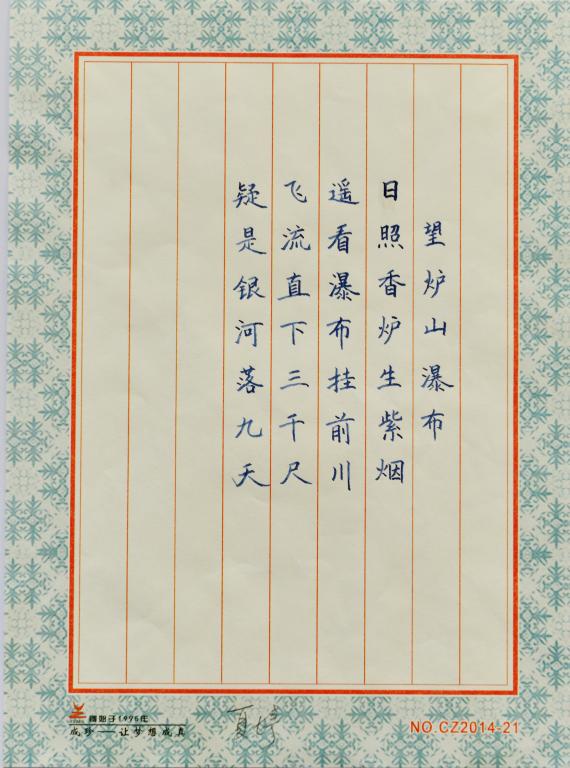 望炉山瀑布
日照香炉生紫烟
遥看瀑布挂前川
飞流直下三千尺
疑是银河落九天
始于1996年
成珍——让梦想成真
夏婷
NO.CZ2014-21